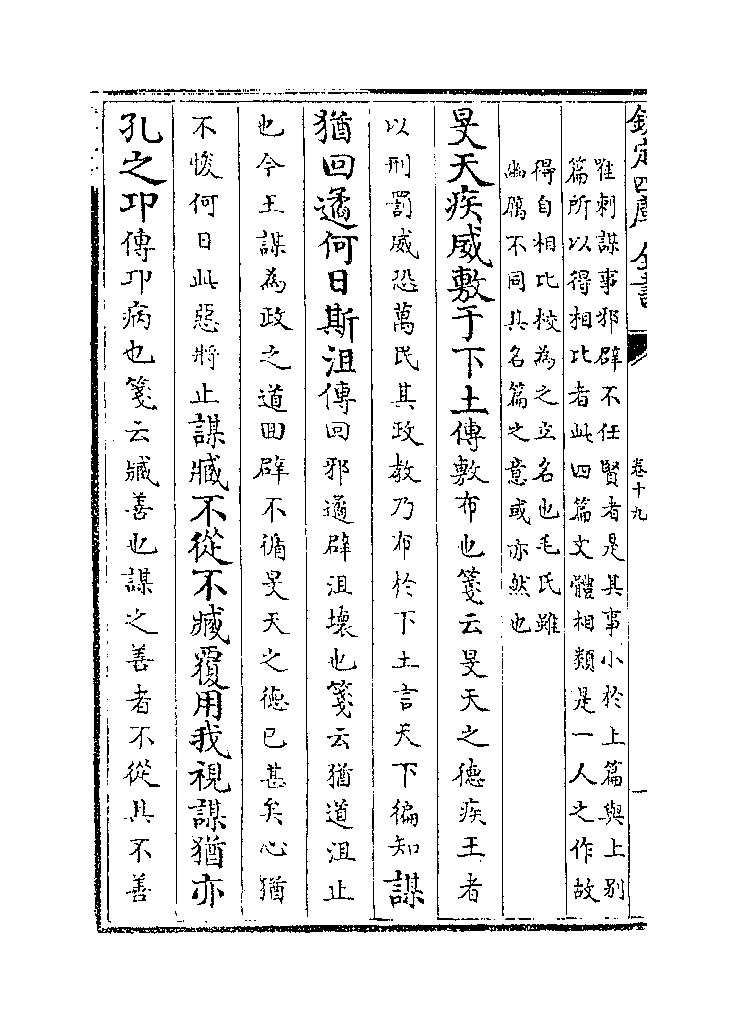 欽定四庫全書
卷十九
一
唯刺謀事邪辟不任賢者是其事小於上篇與上別
篇所以得相比者此四篇文體相類是一人之作故
得自相比校為之立名也毛氏雖
幽厲不同其名篇之意或亦然也
旻天疾威敷于下土傳敷布也箋云旻天之德疾王者
以刑罰威恐萬民其政教乃布於下土言天下徧知謀
猶回遹何日斯沮傳回邪遹辟沮壞也箋云猶道沮止
也今王謀為政之道回辟不循旻天之德已甚矣心猶
不悛何日此惡將止謀臧不從不臧覆用我視謀猶亦
孔之邛傳邛病也箋云臧善也謀之善者不從其不善